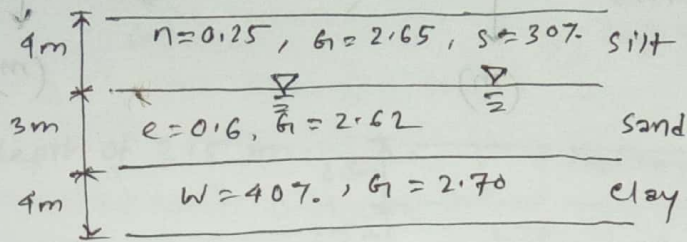 4m n=0.25, G=2.65, S=30% Silt
3m e=0.6, G=2.62 Sand
4m W=40%, G=2.70 Clay